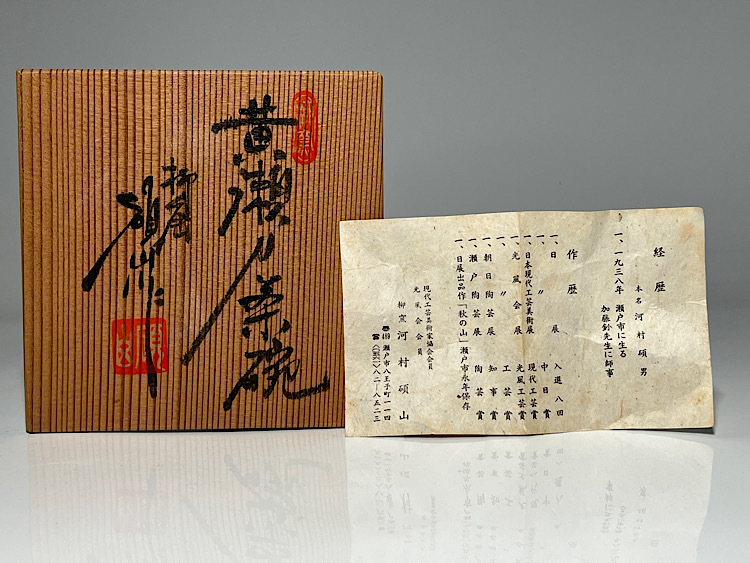 黄瀬戸茶碗
柳窯
碩山作
経歴
本名 河村碩男
一、一九三八年 瀬戸市に生る
加藤釥先生に師事
作歴
一、日展 入選八回
一、〃 中日賞
一、日本現代工芸美術展 現代工芸賞
一、光風会展 光風工芸賞
一、〃 工芸賞
一、朝日陶芸展 知事賞
一、瀬戸陶芸展 陶芸賞
一、日展出品作「秋の山」瀬戸市永年保存
現代工芸美術家協会会員
光風会会員
柳窯 河村碩山
瀬戸市八王子町一一四
八二-八五二三